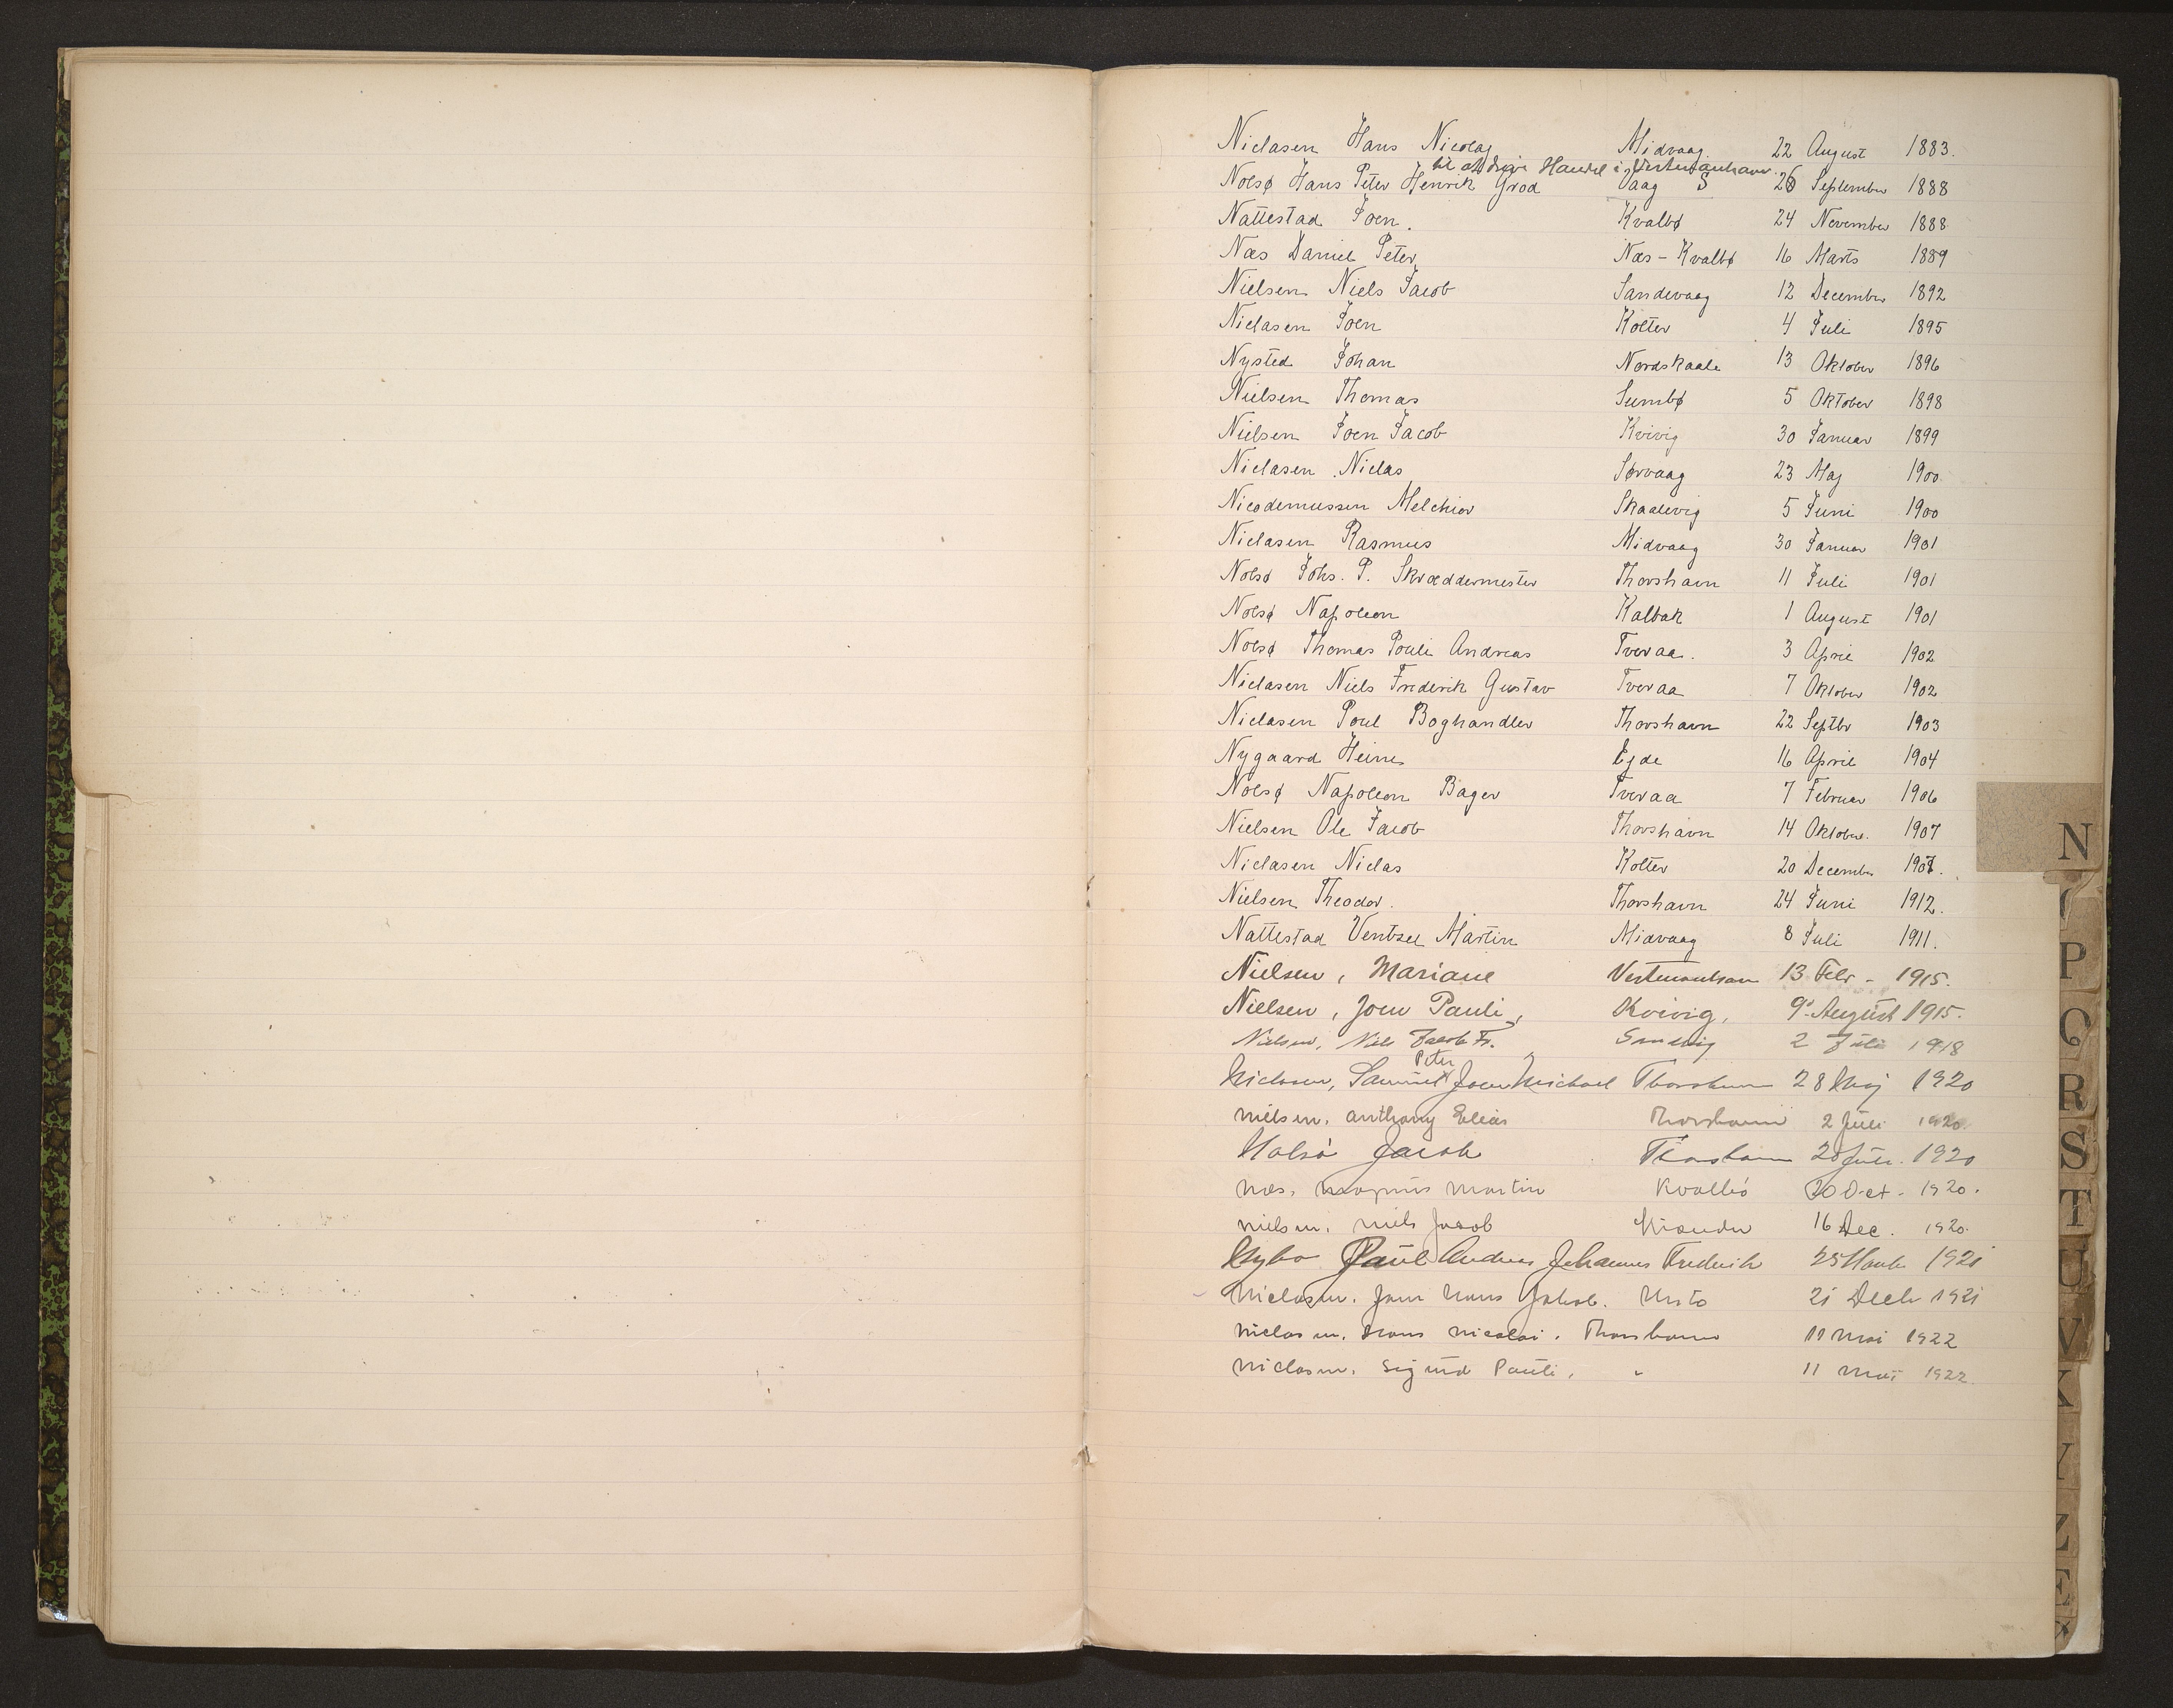 Niclasen Hans Nicolaj Midvaag. 22 August 1883.
til at drive Handel i Vestmanhavn.
Nolsø Hans Peter Henrik Grod Vaag S 26 September 1888
Nattestad Joen. Kvalbø 24 November 1888
Næs Daniel Peter Næs - Kvalbø 16 Marts 1889
Nielsen Niels Jacob Sandevaag 12 December 1892
Niclasen Joen Kolter 4 Juli 1895
Nysted Johan Nordskaale 13 Oktober 1896
Nielsen Thomas Sumbø 5 Oktober 1898
Nielsen Joen Jacob Kvivig 30 Januar 1899
Niclasen Niclas Sørvaag 23 Maj 1900
Nicodemussen Melchior Skaalevig 5 Juni 1900
Niclasen Rasmus Midvaag 30 Januar 1901
Nolsø Johs. P. Skræddermester Thorshavn 11 Juli 1901
Nolsø Napoleon Kalbak 1 August 1901
Nolsø Thomas Pouli Andreas Tveraa. 3 April 1902
Niclasen Niels Frederik Gustav Tveraa 7 Oktober 1902
Niclasen Poul Boghandler Thorshavn 22 Septbr 1903
Nygaard Heine Ejde 16 April 1904
Nolsø Napoleon Bager Tveraa 7 Februar 1906
Nielsen Ole Jacob Thorshavn 14 Oktober. 1907
Niclasen Niclas Kolter 20 December 1907.
Nielsen Theodor. Thorshavn 24 Juni 1912.
Nattestad Ventzel Martin Midvaag 8 Juli 1911.
Nielsen, Mariane Vestmanhavn 13 Febr - 1915.
Nielsen, Joen Pauli, Kvivig, 9' August 1915.
Nielsen, Niels Jacob Fr. 2 Juli 1918
Peter
Niclasen, Samuel Joen Michael Thorshavn 28 Maj 1920
Nielsen. Anthony Elias Thorshavn 2 Juli 1920
Nolsö Jacob Thorshavn 20 Juli. 1920
Næs. Magnus Martin Kvalbö 20 Oct - 1920.
Nielsen. Niels Jacob 16 Dec. 1920.
Nybo Paul Andreas Johannes Frederik 25 Marts 1921
Niclasen. Joen Hans Jakob. 21 Decb 1921
Niclasen. Hans Nicolai. Thorshavn 11 Mai 1922
Niclasen. Sigurd Pauli. " 11 Mai 1922
N
P
Q
R
S
T
U
V
X
Y
Z
Æ
Ø